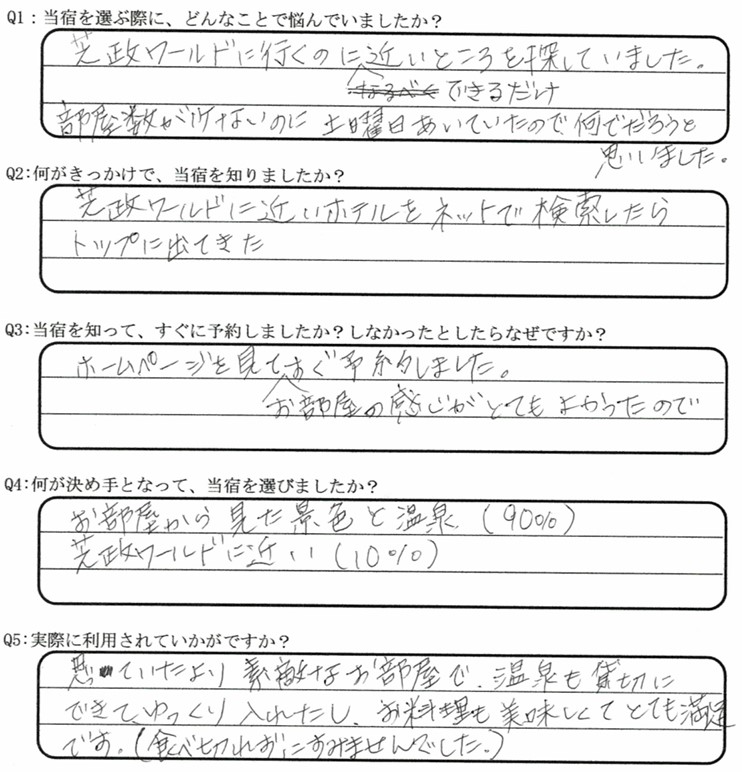 Q1：当宿を選ぶ際に、どんなことで悩んでいましたか？
芝政ワールドに行くのに近いところを探していました。
なるべく できるだけ
部屋数が少ないのに 土曜日あいていたので何でだろうと
思いました。
Q2：何がきっかけで、当宿を知りましたか？
芝政ワールドに近いホテルをネットで検索したら
トップに出てきた
Q3：当宿を知って、すぐに予約しましたか？しなかったとしたらなぜですか？
ホームページを見てすぐ予約しました。
お部屋の感じがとてもよかったので
Q4：何が決め手となって、当宿を選びましたか？
お部屋から見た景色と温泉（90%）
芝政ワールドに近い（10%）
Q5：実際に利用されていかがですか？
思っていたより素敵なお部屋で、温泉も貸切に
できて、ゆっくり入れたし、お料理も美味しくてとても満足
です。（食べ切れずにすみませんでした。）